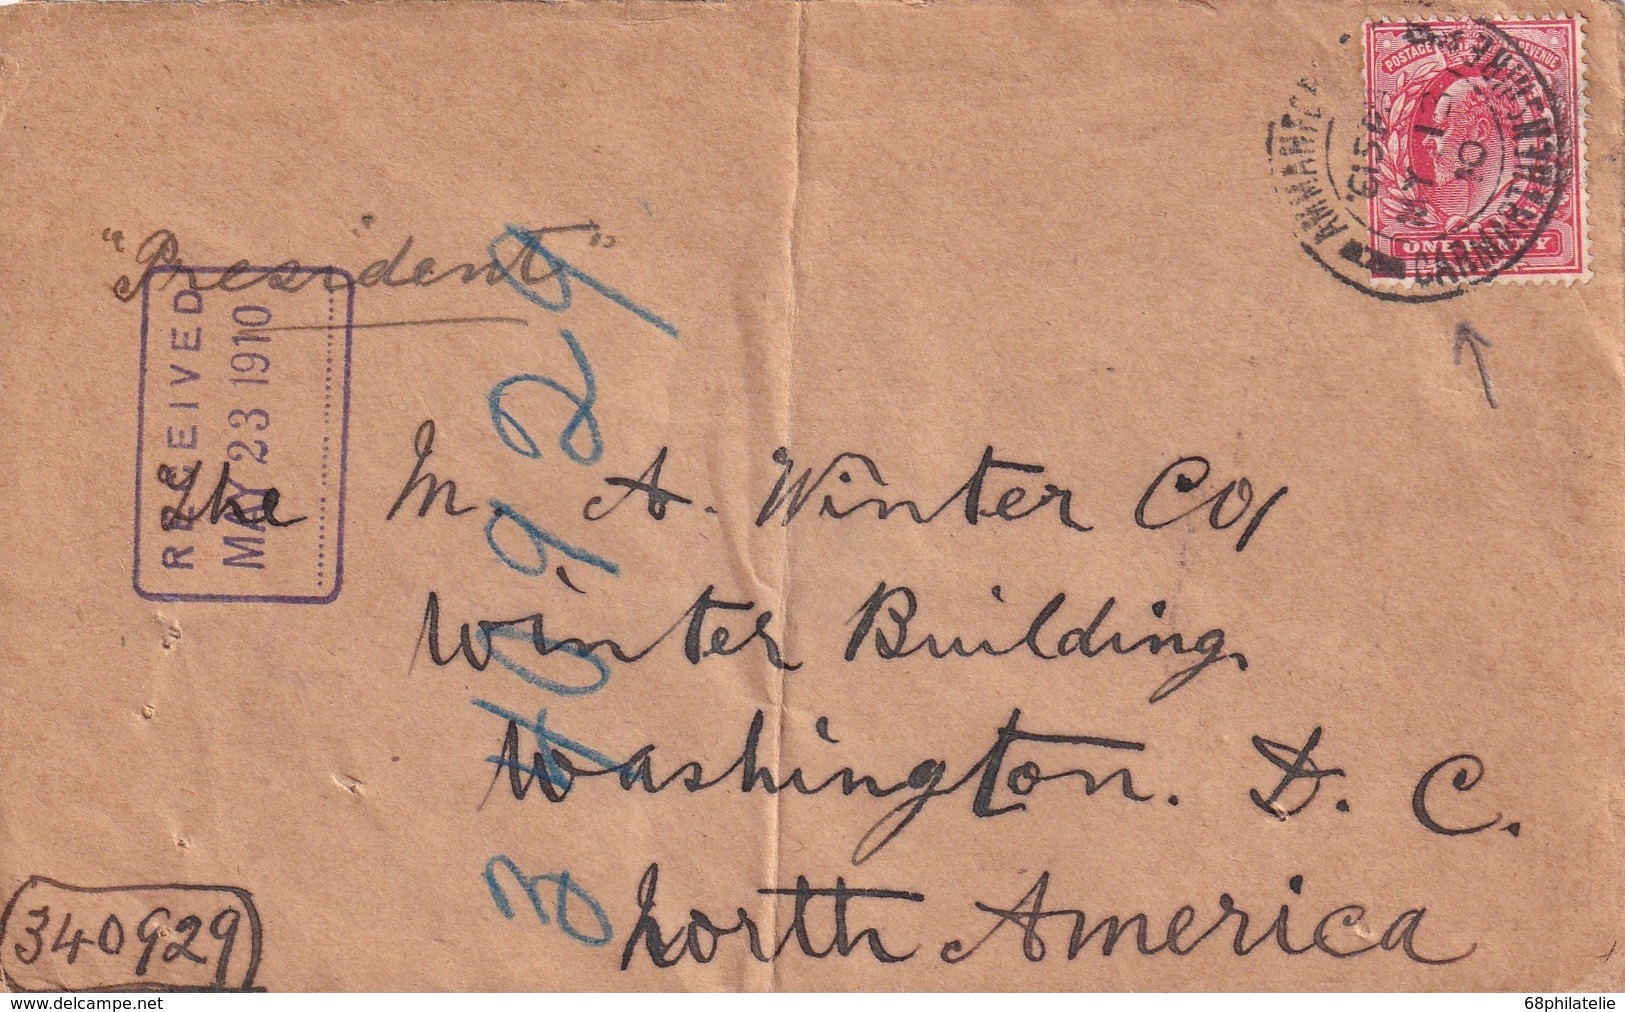 "President"
RECEIVED
MAY 23 1910
POSTAGE REVENUE
ONE PENNY
AMMANFORD
CARMARTHENSHIRE
MY 13
10
The M. A. Winter Co/
Winter Building,
Washington. D. C.
North America
340929
340929
www.delcampe.net
68philatelie